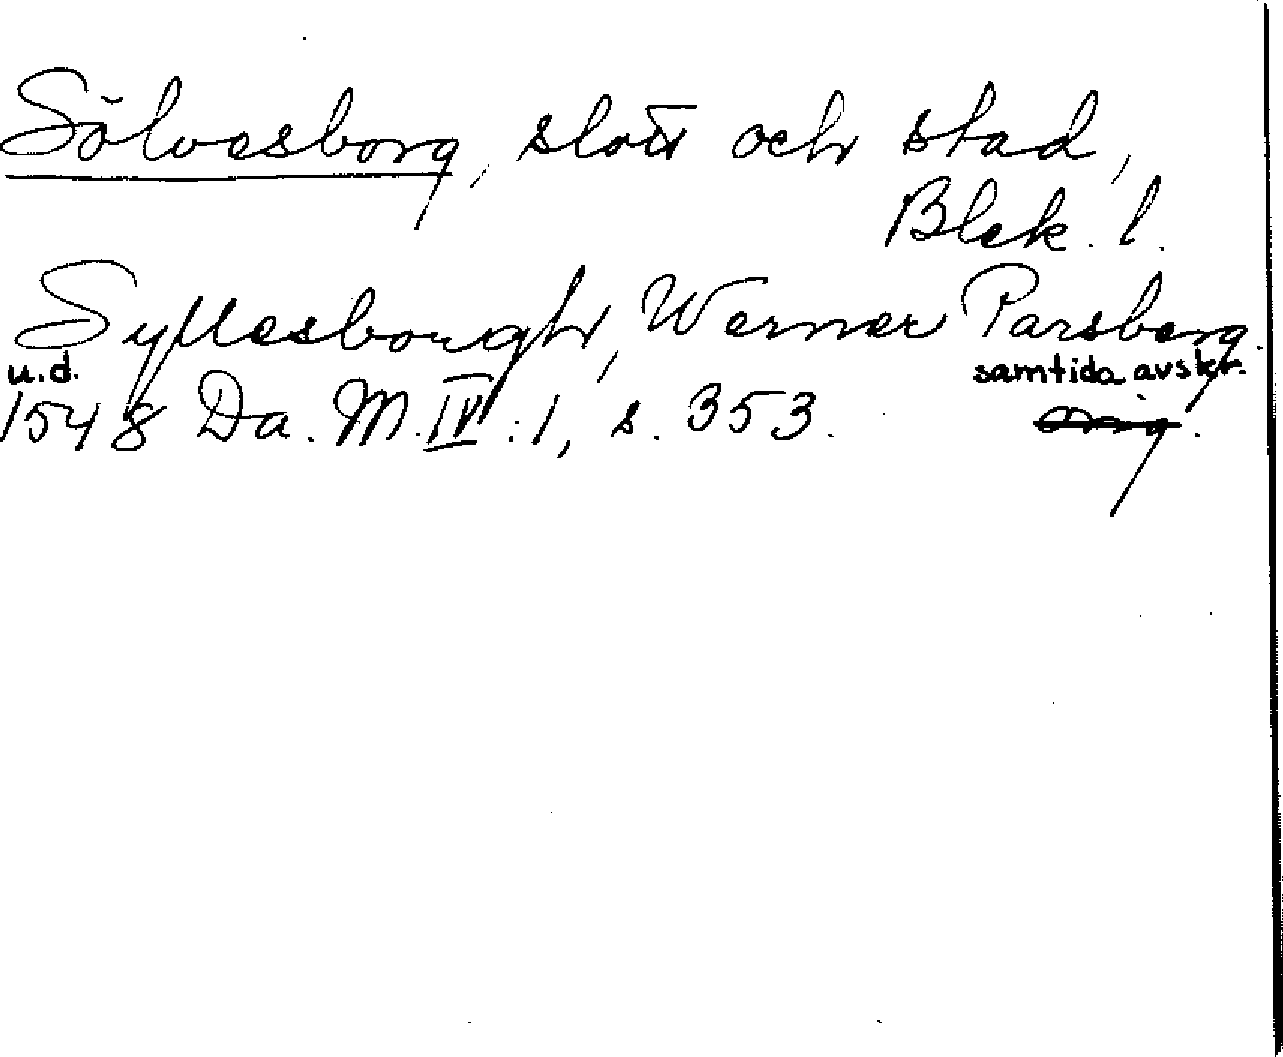 Sölvesborg, slott och stad,
Blek. l.
Syllesborugh, Werner Parsberg.
u.d. samtida avskr.
1548 Da. M. IV:1, s. 353. orig.